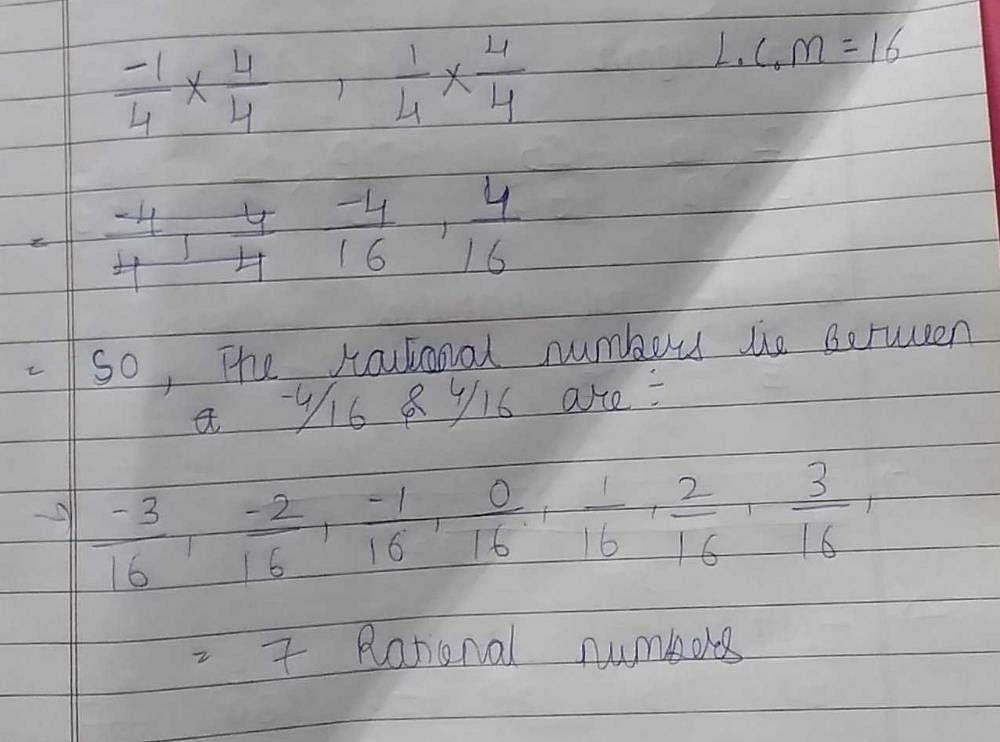 -1/4 × 4/4 , 1/4 × 4/4 L.C.M = 16
= -4/4 , 4/4 -4/16 , 4/16
= SO, The rational numbers lie Between
-4/16 & 4/16 are :-
→ -3/16 , -2/16 , -1/16 , 0/16 , 1/16 , 2/16 , 3/16 ,
= 7 Rational numbers